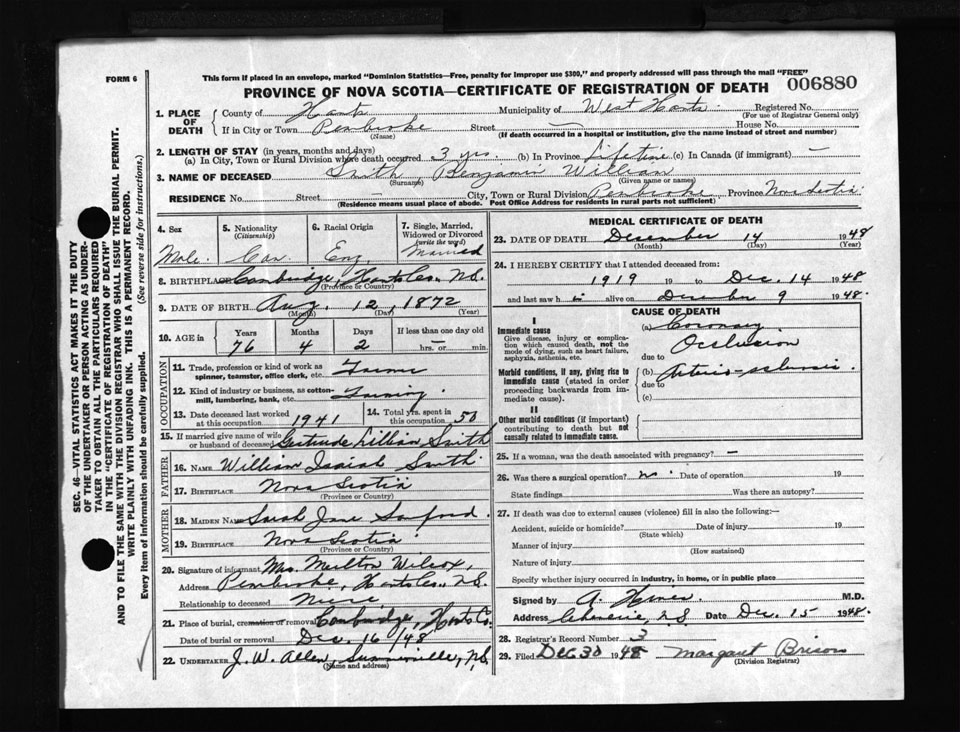 FORM 6
This form if placed in an envelope, marked "Dominion Statistics—Free, penalty for improper use $300," and properly addressed will pass through the mail "FREE"
PROVINCE OF NOVA SCOTIA—CERTIFICATE OF REGISTRATION OF DEATH
006880
1. PLACE OF DEATH
County of Hants Municipality of West Hants Registered No.
(For use of Registrar General only)
If in City or Town Pembroke Street — House No.
(Name) (If death occurred in a hospital or institution, give the name instead of street and number)
2. LENGTH OF STAY (in years, months and days)
(a) In City, Town or Rural Division where death occurred 3 yrs. (b) In Province Lifetime (c) In Canada (if immigrant) —
3. NAME OF DECEASED Smith, Benjamin William
(Surname) (Given name or names)
RESIDENCE No. Street City, Town or Rural Division Pembroke Province Nova Scotia
(Residence means usual place of abode. Post Office Address for residents in rural parts not sufficient)
4. Sex
Male
5. Nationality
(Citizenship)
Can.
6. Racial Origin
Eng
7. Single, Married, Widowed or Divorced
(write the word)
Married
8. BIRTHPLACE Cambridge, Hants Co. N.S.
(Province or Country)
9. DATE OF BIRTH Aug. 12, 1872
(Month) (Day) (Year)
10. AGE in
Years Months Days If less than one day old
76 4 2 hrs. or min.
OCCUPATION
11. Trade, profession or kind of work as spinner, teamster, office clerk, etc. Farmer
12. Kind of industry or business, as cotton-mill, lumbering, bank, etc. Farming
13. Date deceased last worked at this occupation 1941
14. Total yrs. spent in this occupation 50
15. If married give name of wife or husband of deceased Gertrude Lillian Smith
FATHER
16. NAME William Isaiah Smith
17. BIRTHPLACE Nova Scotia
(Province or Country)
MOTHER
18. MAIDEN NAME Sarah Jane Sanford
19. BIRTHPLACE Nova Scotia
(Province or Country)
20. Signature of informant Mrs. Milton Wilcox,
Address Pembroke, Hants Co., N.S.
Relationship to deceased Niece
21. Place of burial, cremation or removal Cambridge, Hants Co.
Date of burial or removal Dec. 16/48
22. UNDERTAKER J. W. Allen, Summerville, N.S.
(Name and address)
MEDICAL CERTIFICATE OF DEATH
23. DATE OF DEATH December 14 1948
(Month) (Day) (Year)
24. I HEREBY CERTIFY that I attended deceased from:
1919 19 to Dec. 14 1948
and last saw h im alive on December 9 1948.
CAUSE OF DEATH
I
Immediate cause
Give disease, injury or complication which caused death, not the mode of dying, such as heart failure, asphyxia, asthenia, etc.
(a) Coronary
Occlusion
due to
Morbid conditions, if any, giving rise to immediate cause (stated in order proceeding backwards from immediate cause).
(b) Arterio-sclerosis.
due to
(c)
II
Other morbid conditions (if important) contributing to death but not causally related to immediate cause.
25. If a woman, was the death associated with pregnancy? —
26. Was there a surgical operation? no Date of operation 19
State findings Was there an autopsy?
27. If death was due to external causes (violence) fill in also the following:—
Accident, suicide or homicide? Date of injury 19
(State which)
Manner of injury
(How sustained)
Nature of injury
Specify whether injury occurred in industry, in home, or in public place
Signed by A. M.D.
Address Cheverie, N.S. Date Dec. 15 1948.
28. Registrar's Record Number 3
29. Filed DEC 30 1948 Margaret Brison
(Division Registrar)
SEC. 46—VITAL STATISTICS ACT MAKES IT THE DUTY
OF THE UNDERTAKER OR PERSON ACTING AS UNDER-
TAKER TO OBTAIN ALL THE PARTICULARS REQUIRED
IN THE "CERTIFICATE OF REGISTRATION OF DEATH"
AND TO FILE THE SAME WITH THE DIVISION REGISTRAR WHO SHALL ISSUE THE BURIAL PERMIT.
WRITE PLAINLY WITH UNFADING INK. THIS IS A PERMANENT RECORD.
Every item of information should be carefully supplied. (See reverse side for instructions.)